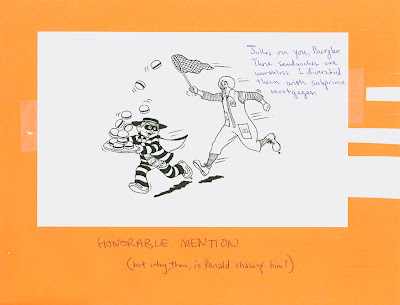 Joke's on you, Burglar.
Those sandwiches are
worthless. I diversified
them with subprime
mortgages.
HONORABLE MENTION
(but why, then, is Ronald chasing him?)